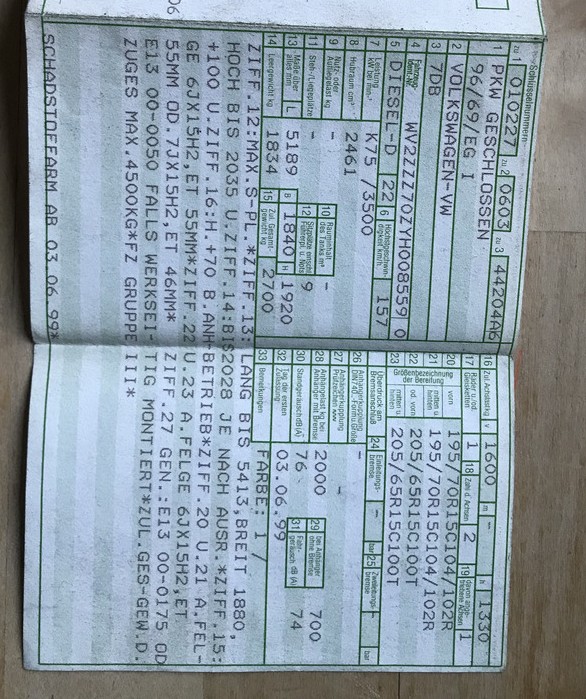 Schlüsselnummern
zu 1 010227 zu 2 0603 zu 3 44204A6
1 PKW GESCHLOSSEN
96/69/EG I
2 VOLKSWAGEN-VW
3 7DB
4 Fahrzeug-Ident.-Nr. WV2ZZZ70ZYH008559 0
5 DIESEL-D 22 6 Höchstgeschwindigkeit km/h 157
7 Leistung kW bei min-1 K75 /3500
8 Hubraum cm³ 2461
9 Nutz- oder Aufliegelast kg - 10 Rauminhalt des Tanks m³ -
11 Steh-/Liegeplätze - 12 Sitzplätze einschl. Führerpl. u. Nots. 9
13 Maße über alles mm L 5189 B 1840 H 1920
14 Leergewicht kg 1834 15 Zul. Gesamtgewicht kg 2700
16 Zul. Achslast kg v 1600 m - h 1330
17 Räder u./od. Gleisketten 1 18 Zahl d. Achsen 2 19 davon angetriebene Achsen 1
Größenbezeichnung der Bereifung
20 vorn 195/70R15C104/102R
21 mitten u. hinten 195/70R15C104/102R
22 od. vorn 205/65R15C100T
23 mitten u. hinten 205/65R15C100T
Überdruck am Bremsanschluß 24 Einleitungsbremse - bar 25 Zweileitungsbremse - bar
26 Anhängerkupplung DIN 740.., Form u. Größe -
27 Anhängerkupplung Prüfzeichen -
28 Anhängelast kg bei Anhänger mit Bremse 2000 29 bei Anhänger ohne Bremse 700
30 Standgeräusch dB (A) 76 31 Fahrgeräusch dB (A) 74
32 Tag der ersten Zulassung 03.06.99
33 Bemerkungen FARBE: 1 /
ZIFF.12:MAX.S-PL.*ZIFF.13: LANG BIS 5413,BREIT 1880,
HOCH BIS 2035 U.ZIFF.14:BIS2028 JE NACH AUSR.*ZIFF.15:
+100 U.ZIFF.16:H.+70 B.ANH-BETRIEB*ZIFF.20 U.21 A.FEL-
GE 6JX15H2,ET 55MM*ZIFF.22 U.23 A.FELGE 6JX15H2,ET
55MM OD.7JX15H2,ET 46MM* ZIFF.27 GEN.:E13 00-0175 OD
E13 00-0050 FALLS WERKSEI- TIG MONTIERT*ZUL.GES-GEW.D.
ZUGES MAX.4500KG*FZ GRUPPE III*
SCHADSTOFFARM AB 03 06 99*
06